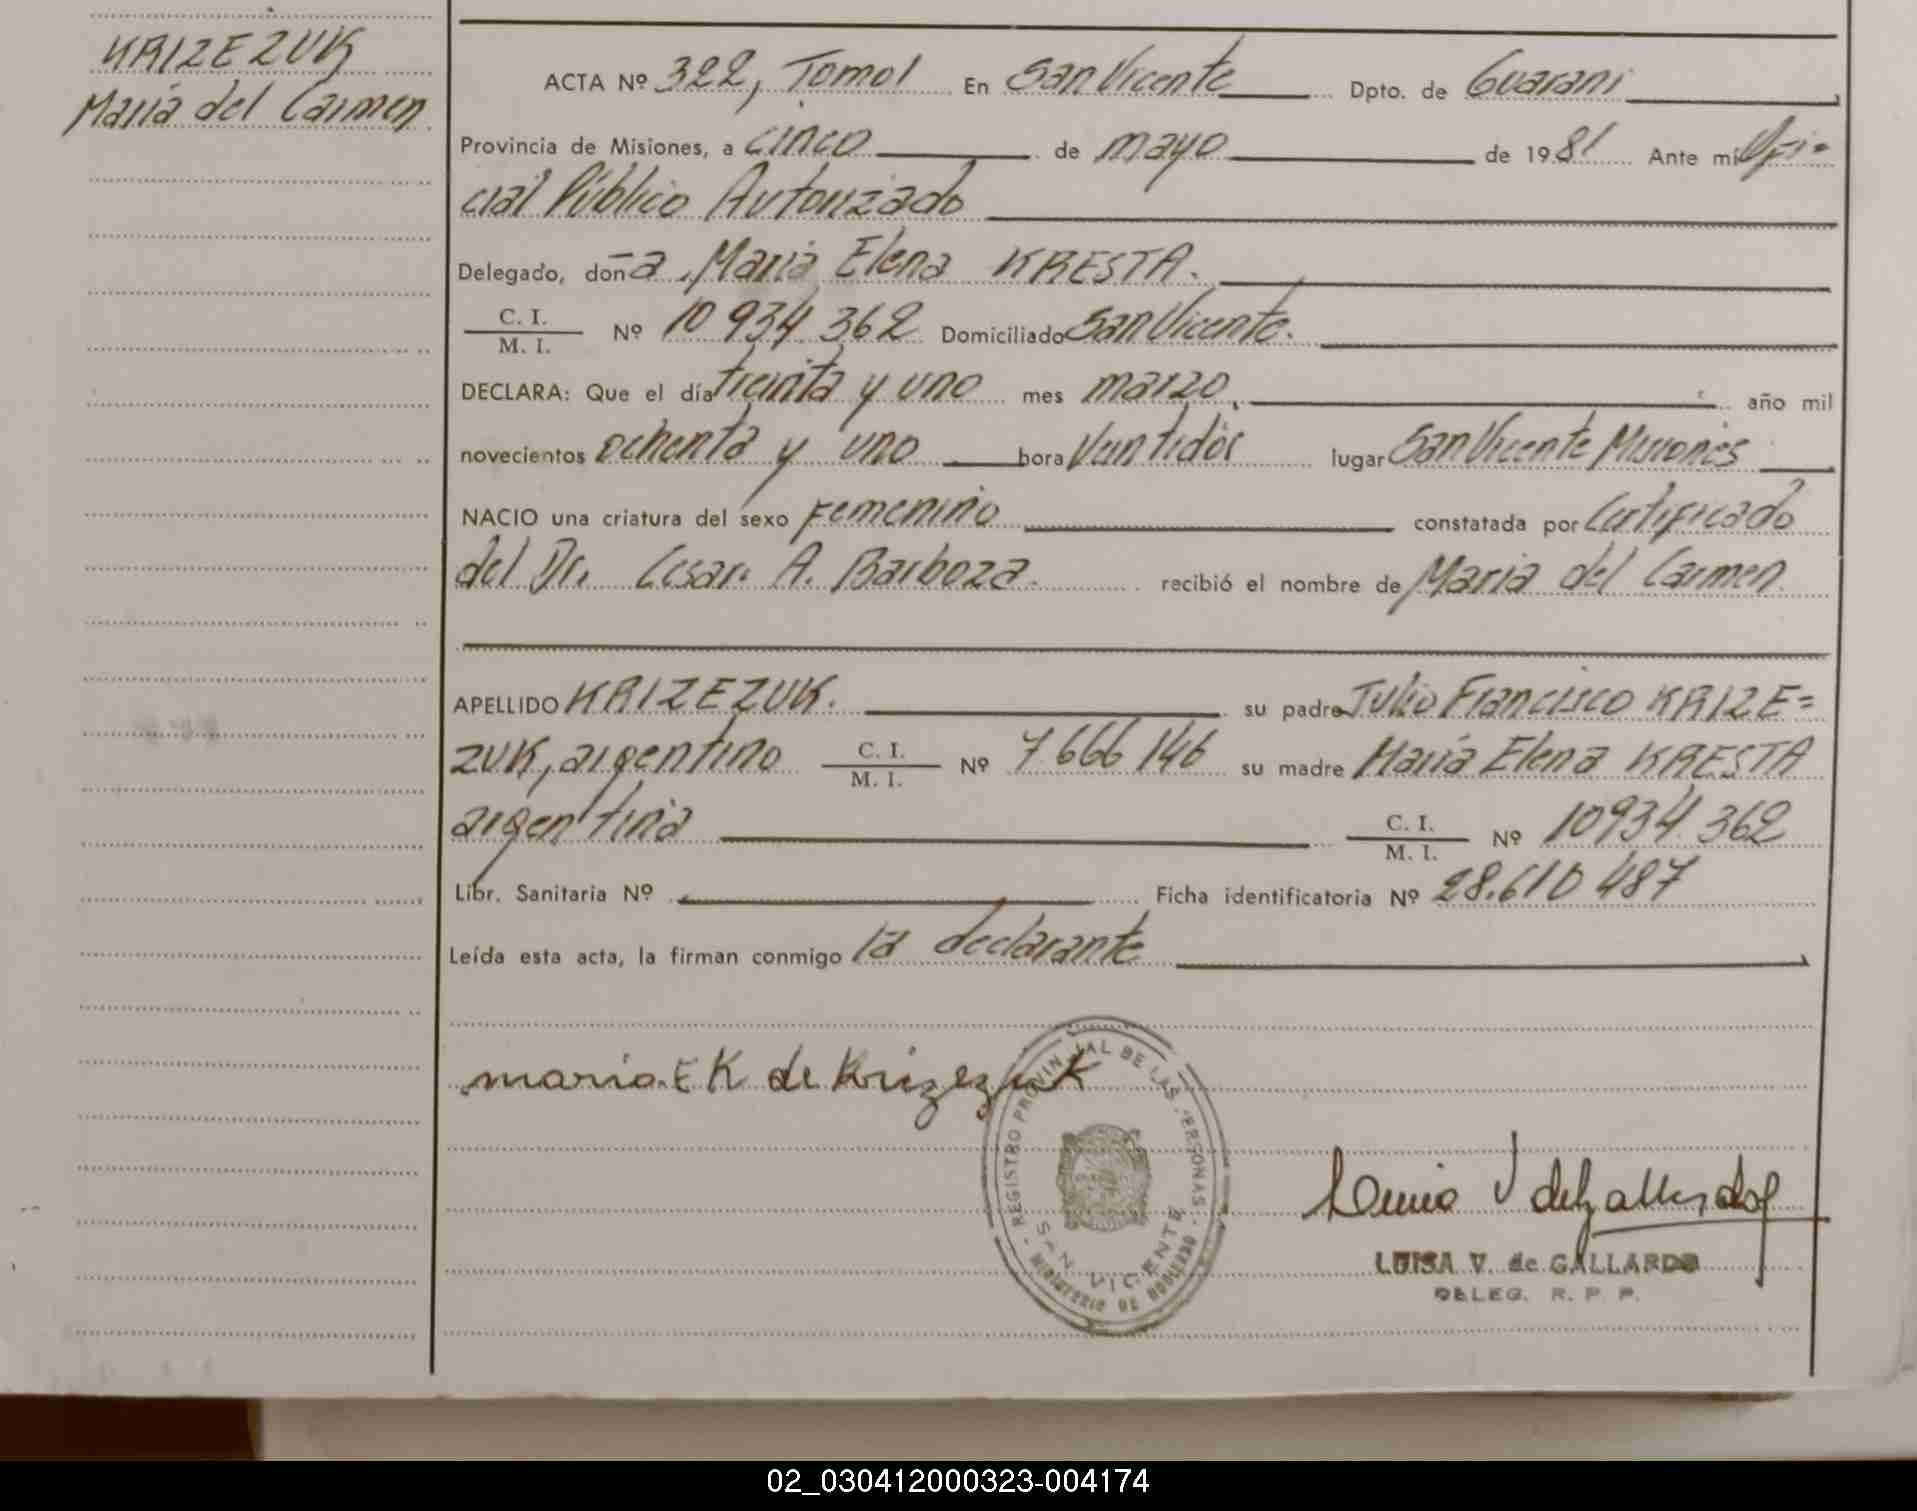 KRIZEZUK
María del Carmen
ACTA Nº 322, Tomo I En San Vicente Dpto. de Guarani
Provincia de Misiones, a cinco de mayo de 1981 Ante mi Ofi-
cial Público Autorizado
Delegado, doña María Elena KRESTA.
C. I.
M. I. Nº 10 934 362 Domiciliado San Vicente.
DECLARA: Que el día treinta y uno mes marzo, año mil
novecientos ochenta y uno hora Veintidós lugar San Vicente Misiones
NACIO una criatura del sexo Femenino constatada por Certificado
del Dr. Cesar A. Barboza. recibió el nombre de María del Carmen.
APELLIDO KRIZEZUK. su padre Julio Francisco KRIZE=
ZUK, argentino C. I.
M. I. Nº 7 666 146 su madre María Elena KRESTA
argentina C. I.
M. I. Nº 10934 362
Libr. Sanitaria Nº Ficha identificatoria Nº 28.610 487
Leída esta acta, la firman conmigo la declarante
maria E K de Krizezuk
REGISTRO PROVINCIAL DE LAS PERSONAS
SAN VICENTE
MINISTERIO DE GOBIERNO
Luisa V de Gallardo
LUISA V. de GALLARDO
DELEG. R. P. P.
02_030412000323-004174